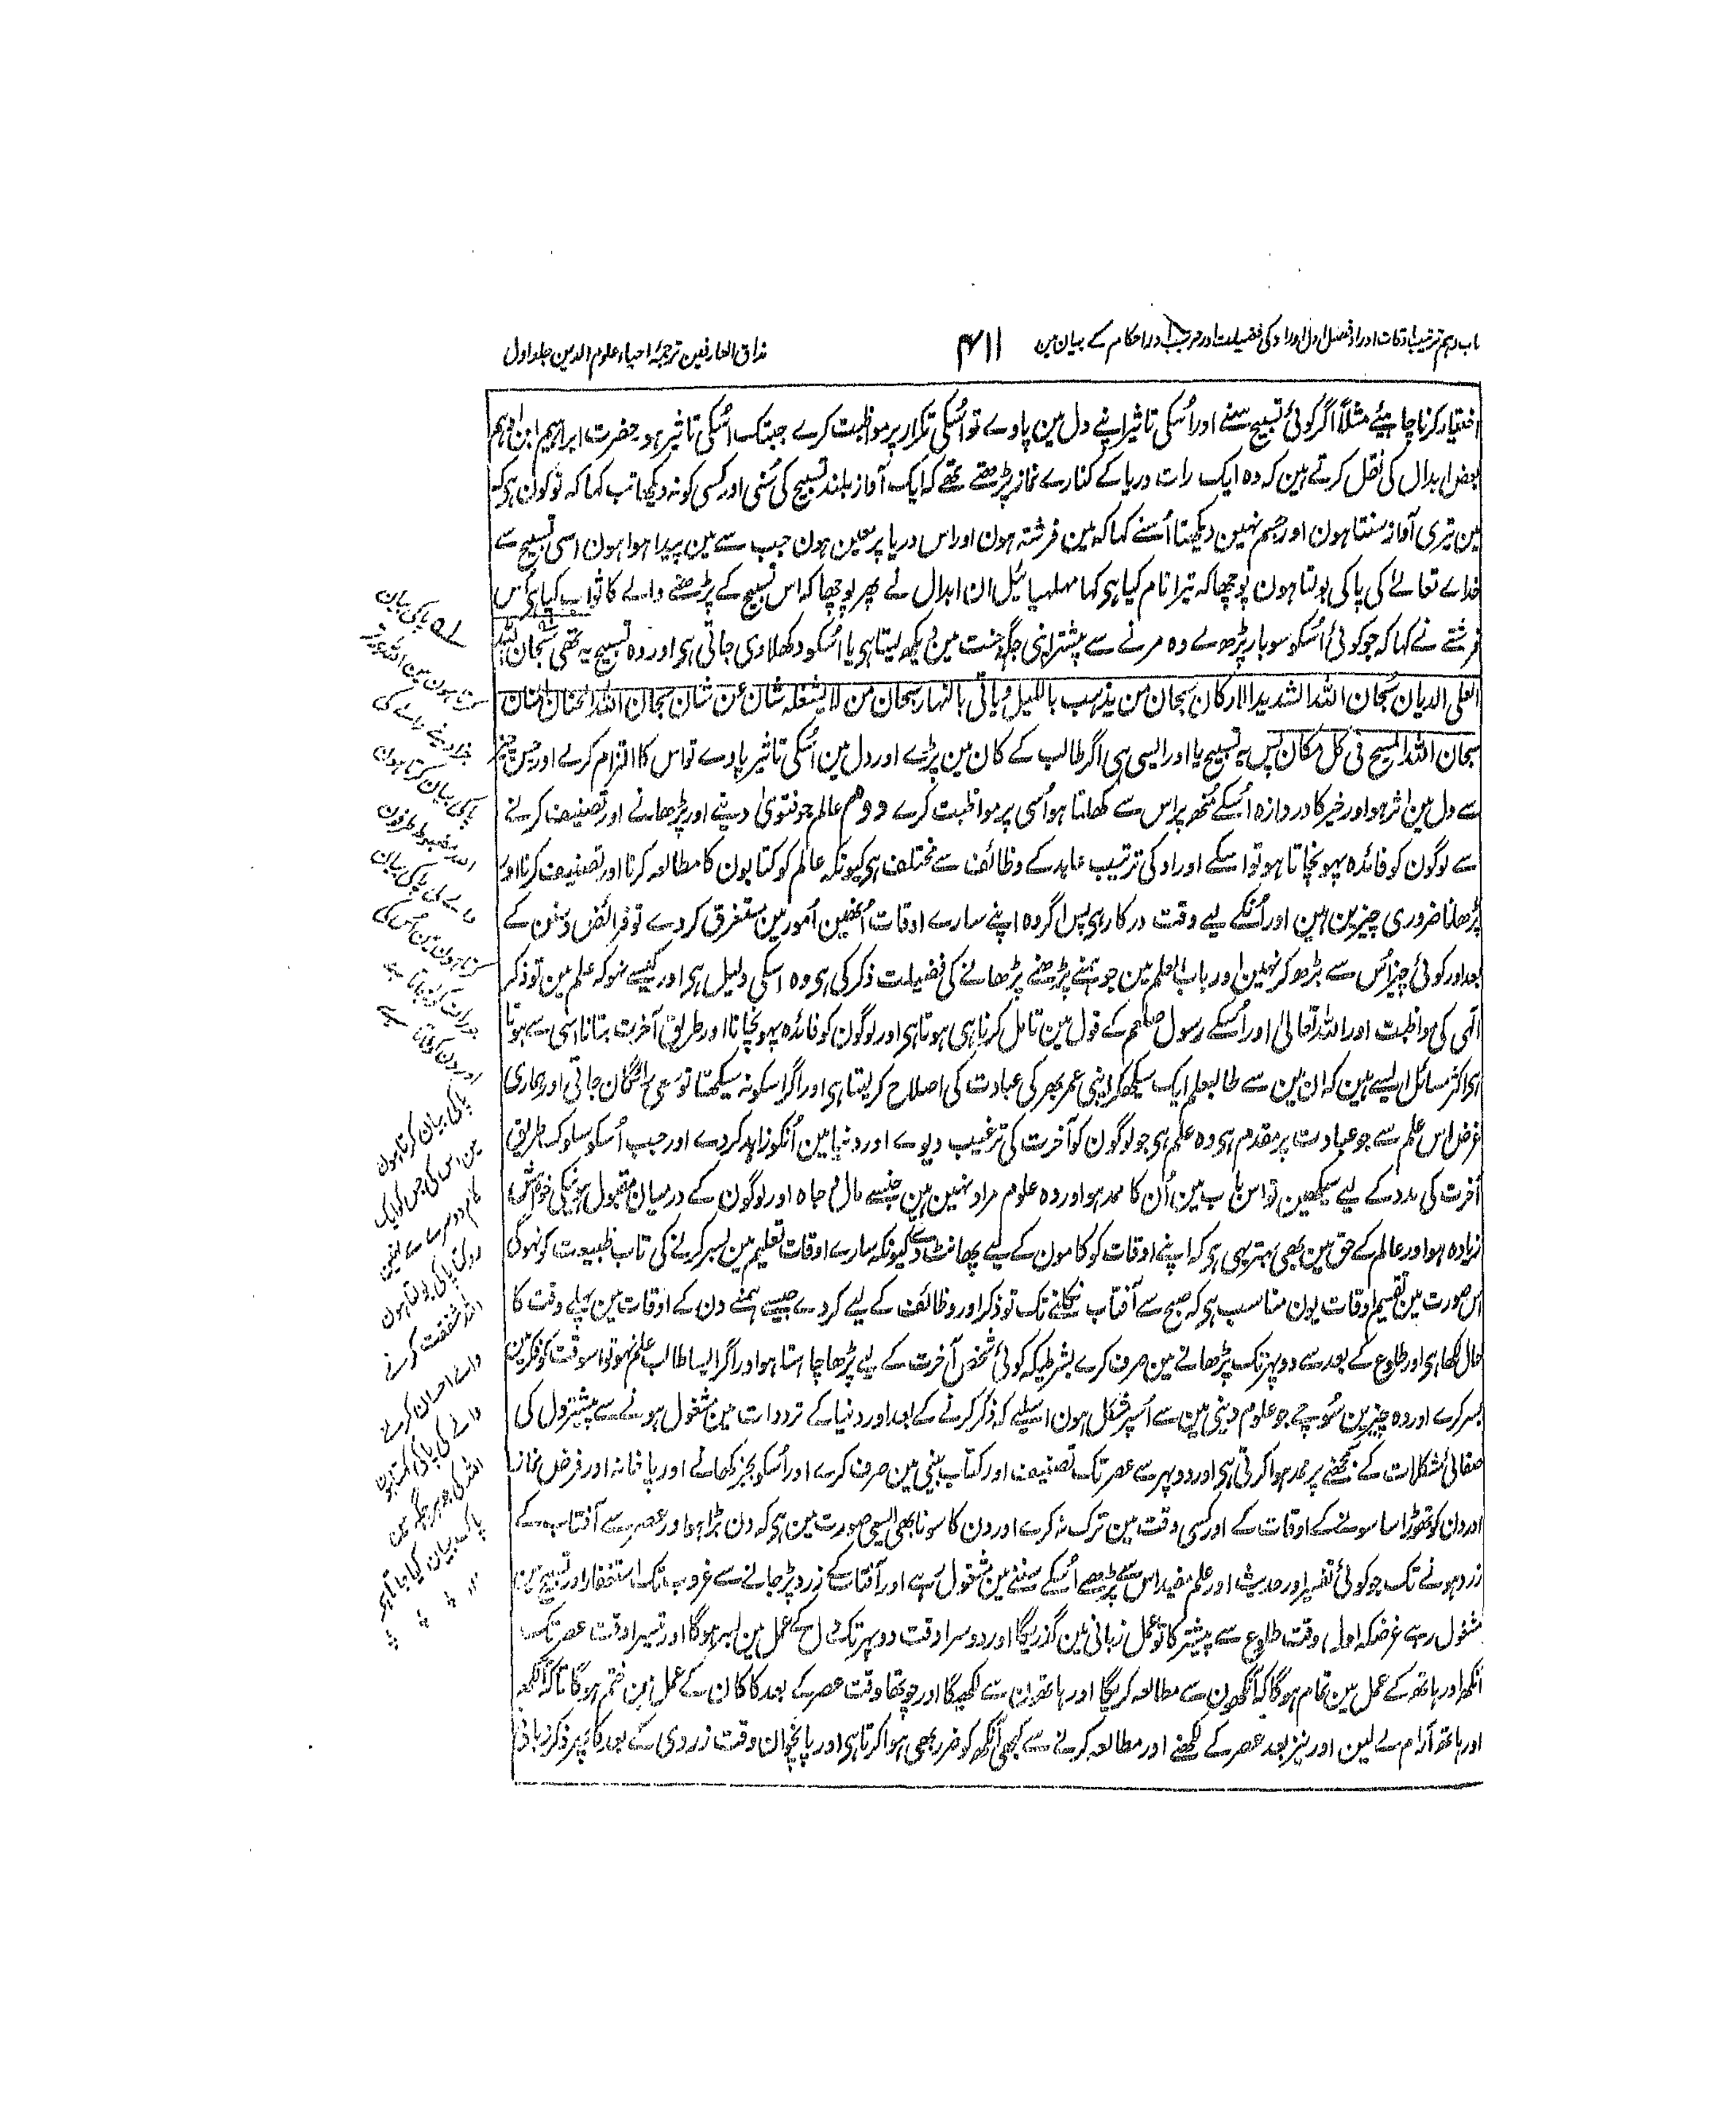 باب دہم ترتیب اوقات اوراد فصل اول اوراد کی فضیلت اور ترتیب اور احکام کے بیان مین
۴۱۱
مذاق العارفین ترجمۂ احیاء علوم الدین جلد اول
اختیار کرنا چاہیئے مثلاً اگر کوئی تسبیح سنے اور اُسکی تاثیر اپنے دل مین پاوے تو اُسکی تکرار پر مواظبت کرے جبتک اُسکی تاثیر ہو حضرت ابراہیم ابن ادہم
بعض ابدال کی نقل کرتے ہین کہ وہ ایک رات دریا کے کنارے نماز پڑھتے تھے کہ ایک آواز بلند تسبیح کی سُنی اور کسی کو نہ دیکھا تب کہا کہ تو کون ہی کہ
مین تیری آواز سنتا ہون اور جسم نہین دیکھتا اُسنے کہا کہ مین فرشتہ ہون اور اس دریا پر معین ہون جب سے مین پیدا ہوا ہون اسی تسبیح سے
خداے تعالےٰ کی پاکی بولتا ہون پوچھا کہ تیرا نام کیا ہی کہا مہلہیائیل ان ابدال نے پھر پوچھا کہ اس تسبیح کے پڑھنے والے کا ثواب کیا ہی اُس
فرشتے نے کہا کہ جو کوئی اُسکو سو بار پڑھ لے وہ مرنے سے پیشتر اپنی جگہ جنت مین دیکھ لیتا ہی یا اُسکو دکھلا دی جاتی ہی اور وہ تسبیح یہ تھی سُبحان اللہ
العلی الدیان سُبحان اللہ الشدید الارکان سبحان من یذہب باللیل و یاتی بالنہار سبحان من لا یشغلہ شان عن شان سبحان اللہ الحنان المنان
سبحان اللہ المسبح فی کل مکان پس یہ تسبیح یا اور ایسی ہی اگر طالب کے کان مین پڑے اور دل مین اُسکی تاثیر پاوے تو اس کا التزام کرلے اور جس چیز
سے دل مین اثر ہو اور خیر کا دروازہ اُسکے مُنھ پر اس سے کھلتا ہو اُسی پر مواظبت کرے دوم عالم جو فتویٰ دینے اور پڑھانے اور تصنیف کرنے
سے لوگون کو فائدہ پہونچاتا ہو تو اسکے اوراد کی ترتیب عابد کے وظائف سے مختلف ہی کیونکہ عالم کو کتابون کا مطالعہ کرنا اور تصنیف کرنا اور
پڑھانا ضروری چیزین ہین اور اُنکے لیے وقت درکار ہی پس اگر وہ اپنے سارے اوقات اُنھین اُمور مین مستغرق کردے تو فرائض و سنن کے
بعد اور کوئی چیز اُس سے بڑھ کر نہین اور باب العلم مین جو ہمنے پڑھنے پڑھانے کی فضیلت ذکر کی ہی وہ اسکی دلیل ہی اور کیسے نہو کہ علم مین تو ذکر
الٰہی کی مواظبت اور اللہ تعالیٰ اور اُسکے رسول صلعم کے قول مین تامل کرنا ہی ہوتا ہی اور لوگون کو فائدہ پہونچانا اور طریق آخرت بتانا اسی سے ہوتا
ہی اکثر مسائل ایسے ہین کہ ان مین سے طالبعلم ایک سیکھ کر اپنی عمر بھر کی عبادت کی اصلاح کر لیتا ہی اور اگر اسکو نہ سیکھتا تو سعی رائگان جاتی اور ہماری
غرض اس علم سے جو عبادت پر مقدم ہی وہ علم ہی جو لوگون کو آخرت کی ترغیب دیوے اور دنیا مین اُنکو زاہد کردے اور جب اُسکو سلوک طریق
آخرت کی مدد کے لیے سیکھین تو اس باب مین اُن کا ممد ہو اور وہ علوم مراد نہین ہین جنسے مال و جاہ اور لوگون کے درمیان مقبول ہونیکی خواہش
زیادہ ہو اور عالم کے حق مین بھی بہتر یہی ہی کہ اپنے اوقات کو کامون کے لیے چھانٹ دے کیونکہ سارے اوقات تعلیم مین بسر کرنے کی تاب طبیعت کو نہوگی
اس صورت مین تقسیم اوقات یون مناسب ہی کہ صبح سے آفتاب نکلنے تک تو ذکر اور وظائف کے لیے کردے جیسے ہمنے دن کے اوقات مین پہلے وقت کا
حال لکھا ہی اور طلوع کے بعد سے دوپہر تک پڑھانے مین صرف کرے بشرطیکہ کوئی شخص آخرت کے لیے پڑھا چاہتا ہو اور اگر ایسا طالب علم نہو تو اسوقت کو فکر مین
بسر کرے اور وہ چیزین سُوچے جو علوم دینی مین سے اُسپر مشکل ہون اسلیے کہ ذکر کرنے کے بعد اور دنیا کے ترددات مین مشغول ہونے سے پیشتر دل کی
صفائی مشکلات کے سمجھنے پر ممد ہوا کرتی ہی اور دوپہر سے عصر تک تصنیف اور کتاب بینی مین صرف کرے اور اُسکو بجز کھانے اور پاخانہ اور فرض نماز
اور دن کو تھوڑا سا سونے کے اوقات کے اور کسی وقت مین ترک نہ کرے اور دن کا سونا بھی ایسی صورت مین ہی کہ دن بڑا ہو اور عصر سے آفتاب کے
زرد ہونے تک جو کوئی تفسیر اور حدیث اور علم مفید اس سے پڑھے اُسکے سننے مین مشغول رہے اور آفتاب کے زرد پڑ جانے سے غروب تک استغفار اور تسبیح مین
مشغول رہے غرضکہ اول وقت طلوع سے پیشتر کا تو عمل زبانی مین گذریگا اور دوسرا وقت دوپہر تک دل کے عمل مین بسر ہوگا اور تیسرا وقت عصر تک
آنکھ اور ہاتھ کے عمل مین تمام ہوگا کہ آنکھون سے مطالعہ کریگا اور ہاتھون سے لکھیگا اور چوتھا وقت عصر کے بعد کا کان کے عمل مین ختم ہوگا تاکہ آنکھ
اور ہاتھ آرام لے لین اور نیز بعد عصر کے لکھنے اور مطالعہ کرنے سے کبھی آنکھ کو ضرر بھی ہوا کرتا ہی اور پانچوان وقت زردی کے بعد کا پھر ذکر زبانی
لہ پاکی بیان
کرتا ہون مین اللہ برتر
جزا دینے والے کی
پاکی بیان کرتا ہون
اللہ مضبوط طرفون
والے کی پاکی بیان
کرتا ہون مین اُس کی
جو رات کو لے جاتا ہے
اور دن کو لاتا ہے
پاکی بیان کرتا ہون
مین اس کی جس کو ایک
کام دوسرے سے نہین
روکتا پاکی بولتا ہون
اللہ شفقت کرنے
والے احسان کرنے
والے کی پاکی کہتا ہون
اللہ کی جو ہر جگہ مین
پاک بیان کیا جاتا ہے